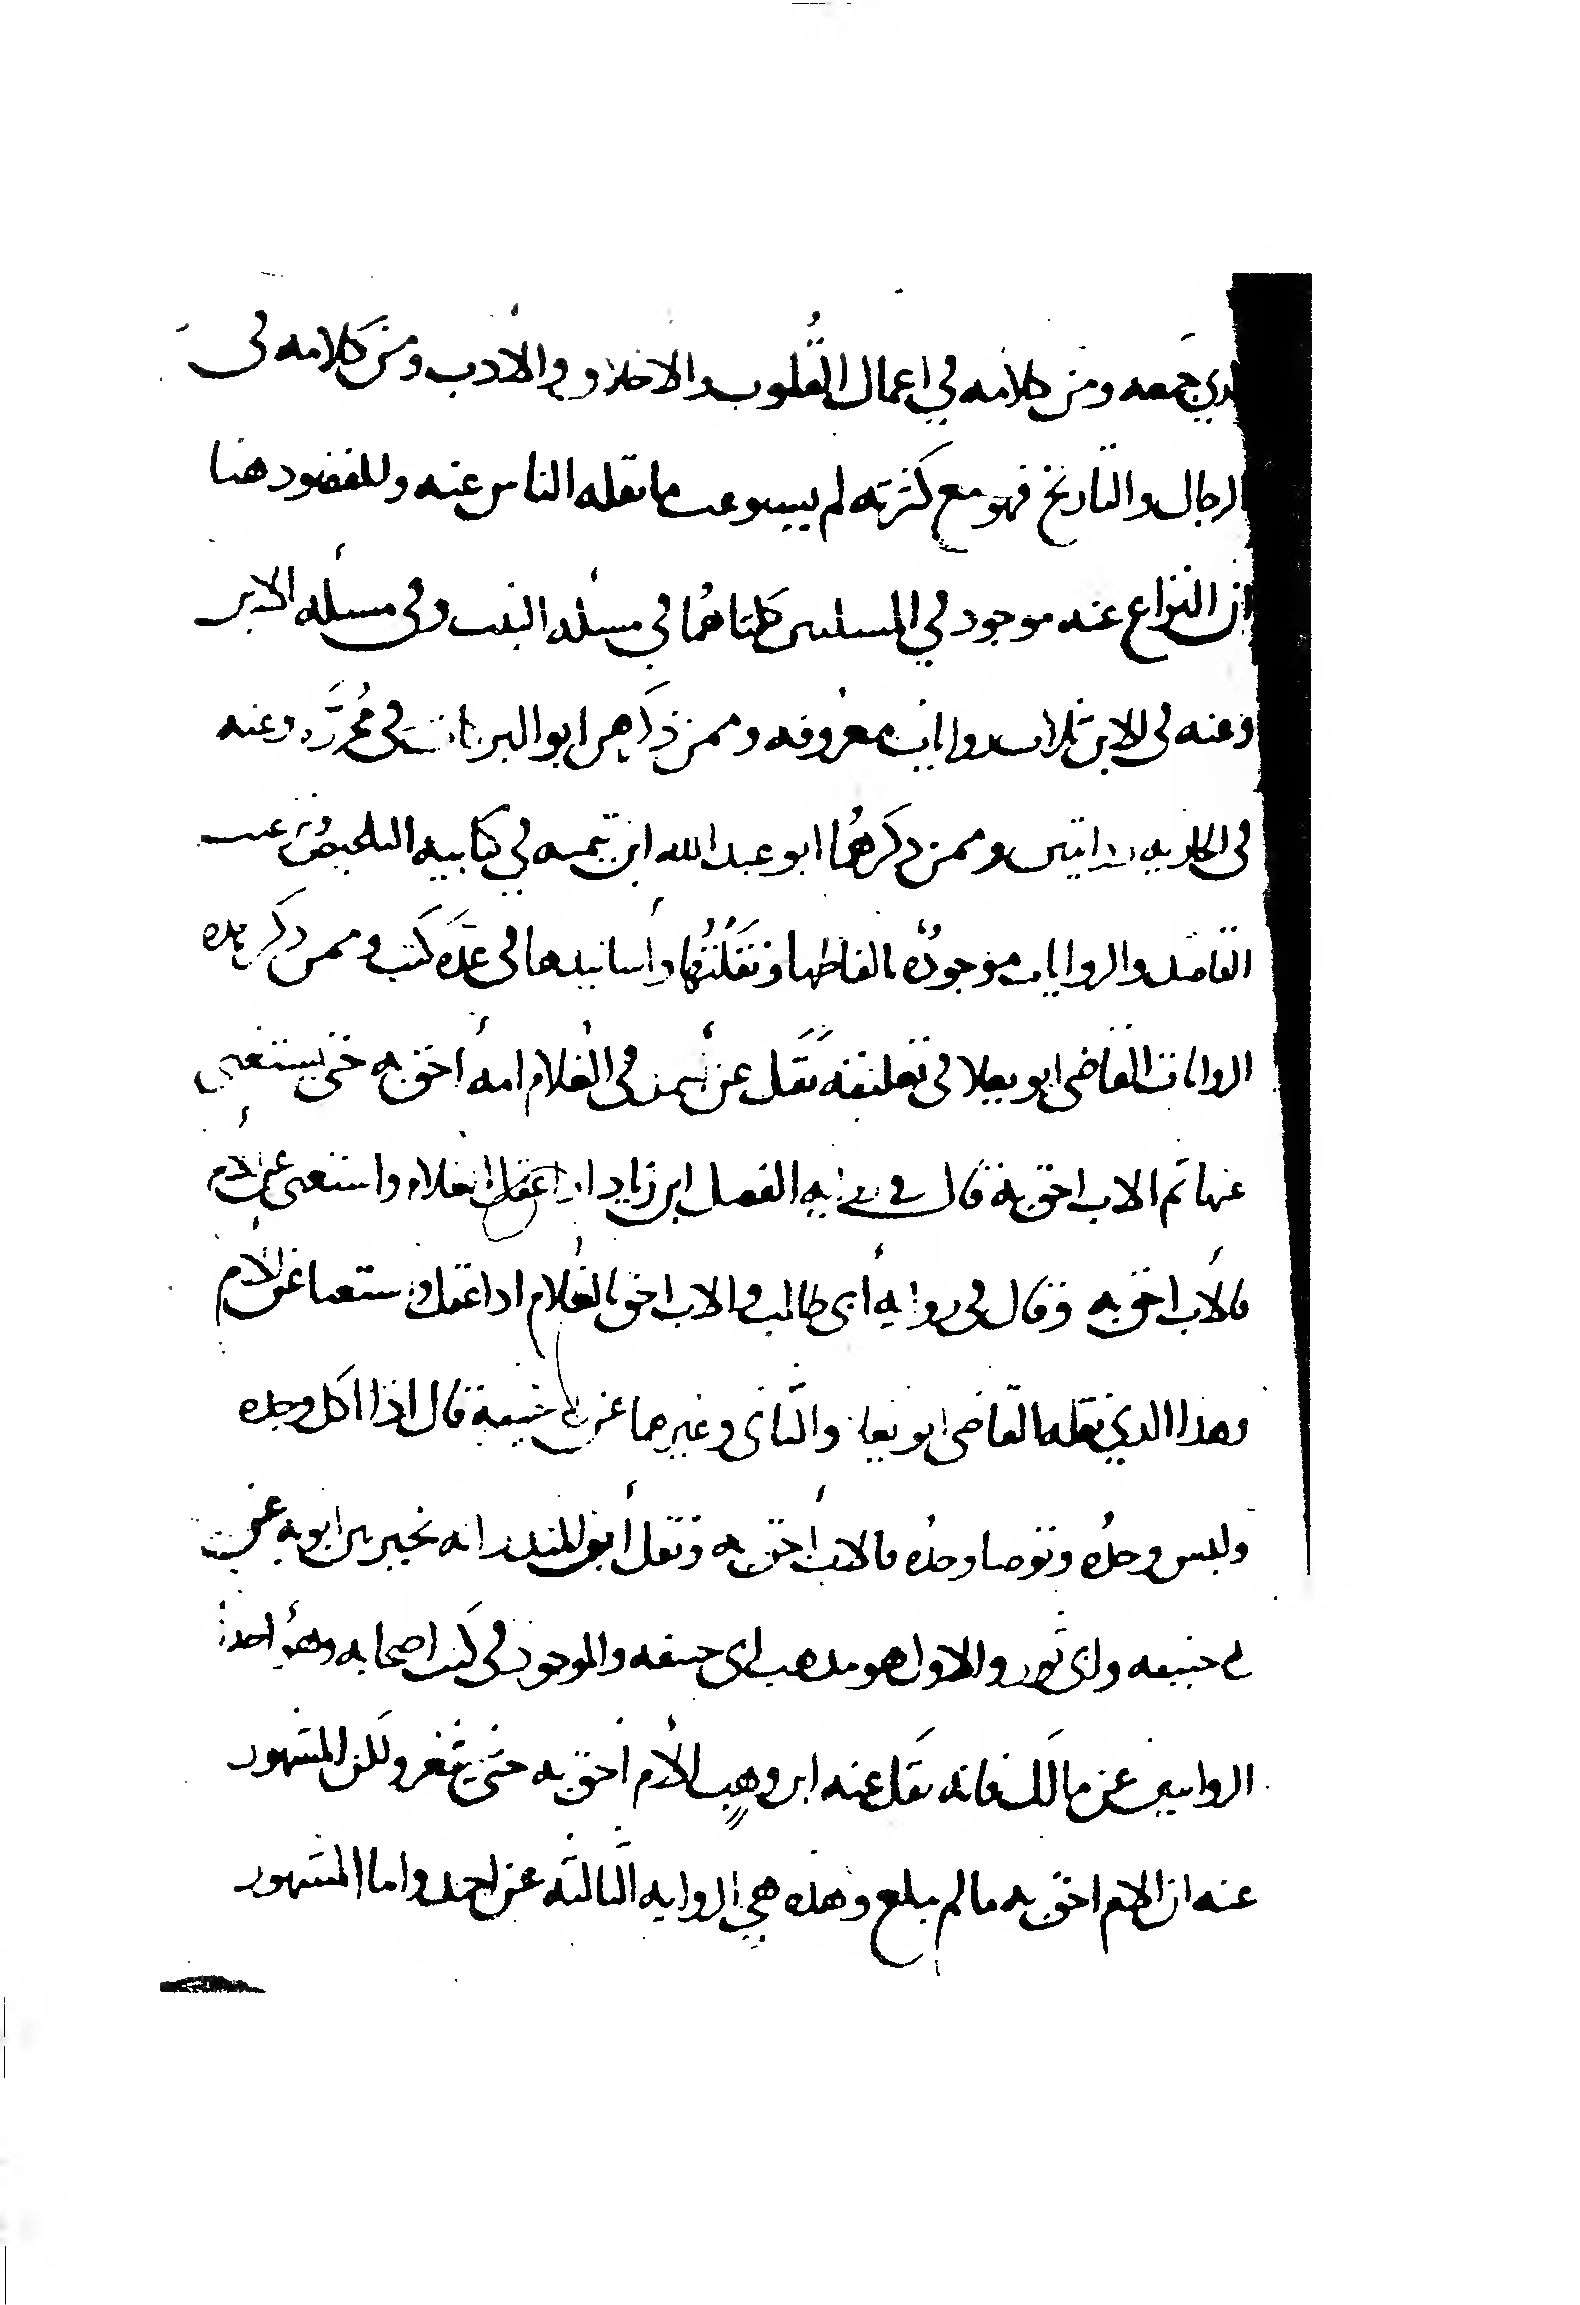 الذي جمعه ومن كلامه في اعمال القلوب والاخلاق والأدب ومن كلامه في
الرجال والتاريخ فهو مع كثرته لم يستوعب ما نقله الناس عنه والمقصود هنا
ان النزاع عنه موجود في المسلتين كلتاهما في مسئلة البنت وفي مسئله الابن
وعنه في الابن ثلاث روايات معروفه وممن ذكرهن ابو البركات في محرره وعنه
في الجاريه روايتين وممن ذكرهما ابو عبد الله ابن تيميه في كتابيه التلخيص وترغيب
القاصد والروايات موجودة بالفاظها ونقلتها وأسانيدها في عدة كتب وممن ذكر هذه
الروايات القاضي ابو يعلا في تعليقه نقل عن أحمد في الغلام امه أحق به حتى يستغني
عنها ثم الاب احق به قال في رواية الفضل ابن زياد اذا عقل الغلام واستغنى عن الأم
فالأب احق به وقال في رواية أبي طالب والاب احق بالغلام اذا عقل واستغنا عن الأم
وهذا الذي نقله القاضي ابو يعلا والثاني وغيرهما عن ابي حنيفة قال اذا اكل وحده
ولبس وحده وتوضا وحده فالاب أحق به ونقل أبن المنذر انه يخير بين ابويه عن
ابي حنيفه وابي ثور والاول هو مذهب ابي حنيفه والموجود في كتب اصحابه وهو احدى
الروايتين عن مالك فانه نقل عنه ابن وهب الأم أحق به حتى يثغر ولكن المشهور
عنه ان الام احق به ما لم يبلغ وهذه هي الروايه الثالثه عن احمد واما المشهور